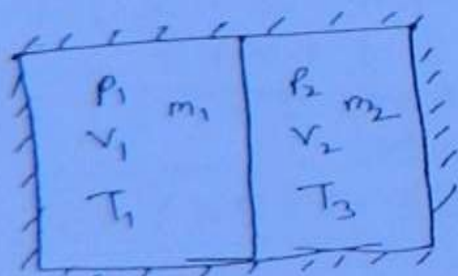 P₁ m₁
V₁
T₁
P₂ m₂
V₂
T₃